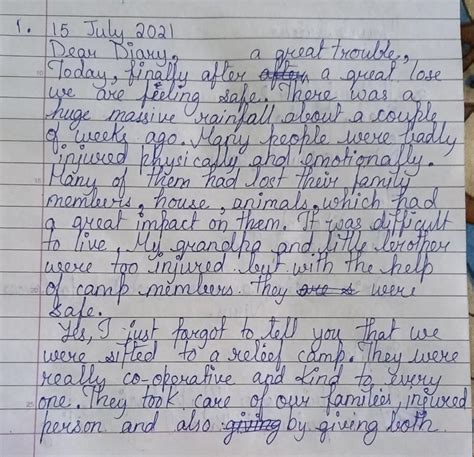 1. 15 July 2021
Dear Diary, a great trouble.,
Today, finally after after a great lose
we are feeling safe. There was a
huge massive rainfall about a couple
of weeks ago. Many people were badly
injured physically and emotionally.
Many of them had lost their family
members, house, animals, which had
a great impact on them. It was difficult
to live. My grandpa and little brother
were too injured but with the help
of camp members they are s were
safe.
Yes, I just forgot to tell you that we
were sifted to a relief camp. They were
really co-operative and kind to every
one. They took care of our families, injured
person and also giving by giving both